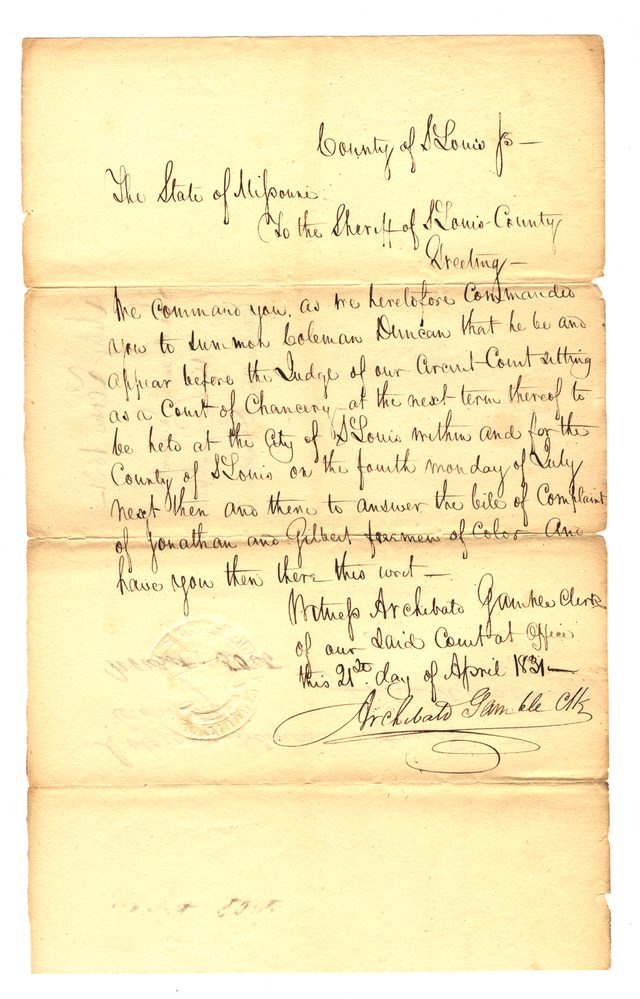 County of St Louis ss—
The State of Missouri
To the Sheriff of St Louis County
Greeting—
We command you, as we heretofore Commanded
you to summon Coleman Duncan that he be and
appear before the Judge of our Circuit Court sitting
as a Court of Chancery at the next term thereof to
be held at the City of St Louis within and for the
County of St Louis on the fourth monday of July
next then and there to answer the bill of Complaint
of Jonathan and Gilbert freemen of Color And
have you then there this writ—
Witness Archibald Gamble Clerk
of our said Court at Office
this 21st day of April 1831—
Archibald Gamble Clk